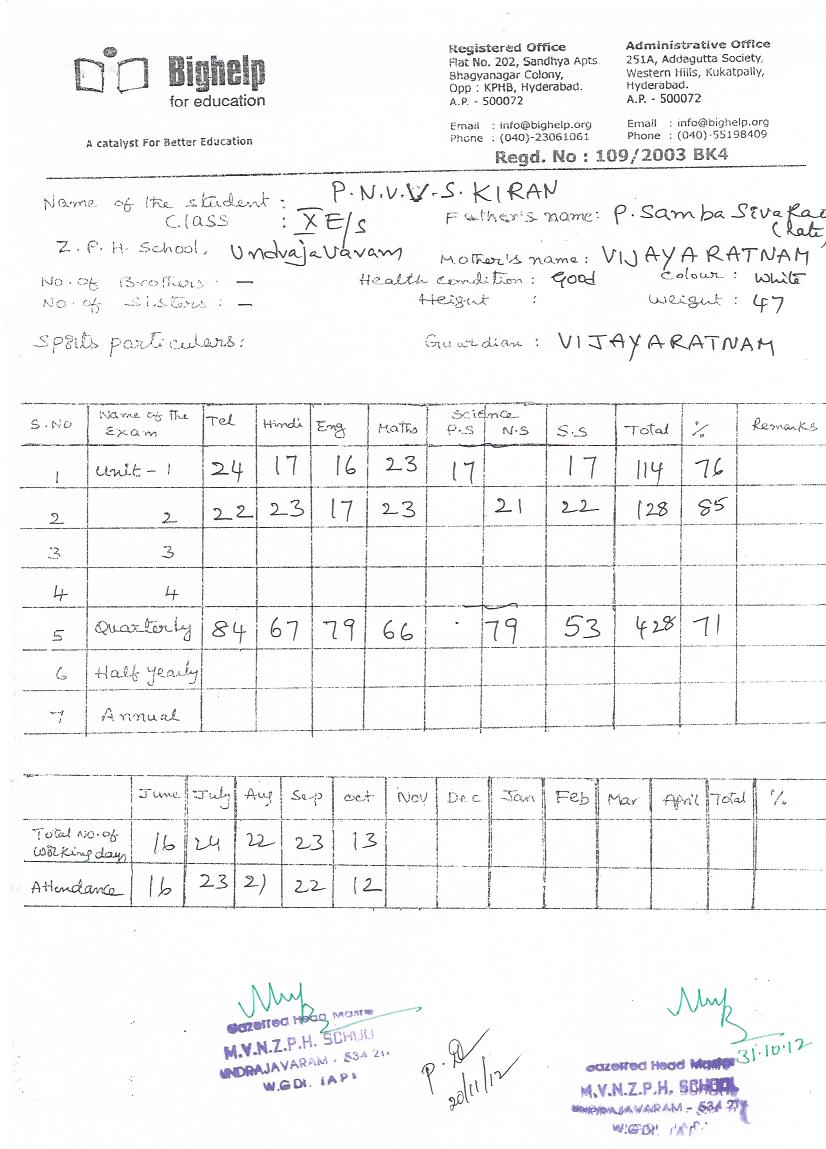 Bighelp
for education
A catalyst For Better Education
Registered Office
Flat No. 202, Sandhya Apts.
Bhagyanagar Colony,
Opp : KPHB, Hyderabad.
A.P. - 500072
Email : info@bighelp.org
Phone : (040)-23061061
Administrative Office
251A, Addagutta Society,
Western Hills, Kukatpally,
Hyderabad.
A.P. - 500072
Email : info@bighelp.org
Phone : (040)-55198409
Regd. No : 109/2003 BK4
Name of the student : P.N.V.V.S. KIRAN
Class : X E/S Father's name: P. Samba Siva Rao
(Late
Z.P.H. School, Undrajavaram Mother's name: VIJAYARATNAM
No. of Brothers : — Health condition : Good Colour : White
No. of Sisters : — Height : Weight : 47
Sports particulars: Guardian : VIJAYARATNAM
S.NO Name of the Exam Tel Hindi Eng Maths Science P.S N.S S.S Total % Remarks
1 Unit - 1 24 17 16 23 17 17 114 76
2 2 22 23 17 23 21 22 128 85
3 3
4 4
5 Quarterly 84 67 79 66 79 53 428 71
6 Half yearly
7 Annual
June July Aug Sep Oct Nov Dec Jan Feb Mar April Total %
Total No. of working days 16 24 22 23 13
Attendance 16 23 21 22 12
Gazetted Head Maste
M.V.N.Z.P.H. SCHOO
UNDRAJAVARAM - 534 21
W.GDt. (AP)
20/11/12
31.10.12
Gazetted Head Master
M.V.N.Z.P.H. SCHOOL
UNDRAJAVARAM - 534 21
W.GDt.